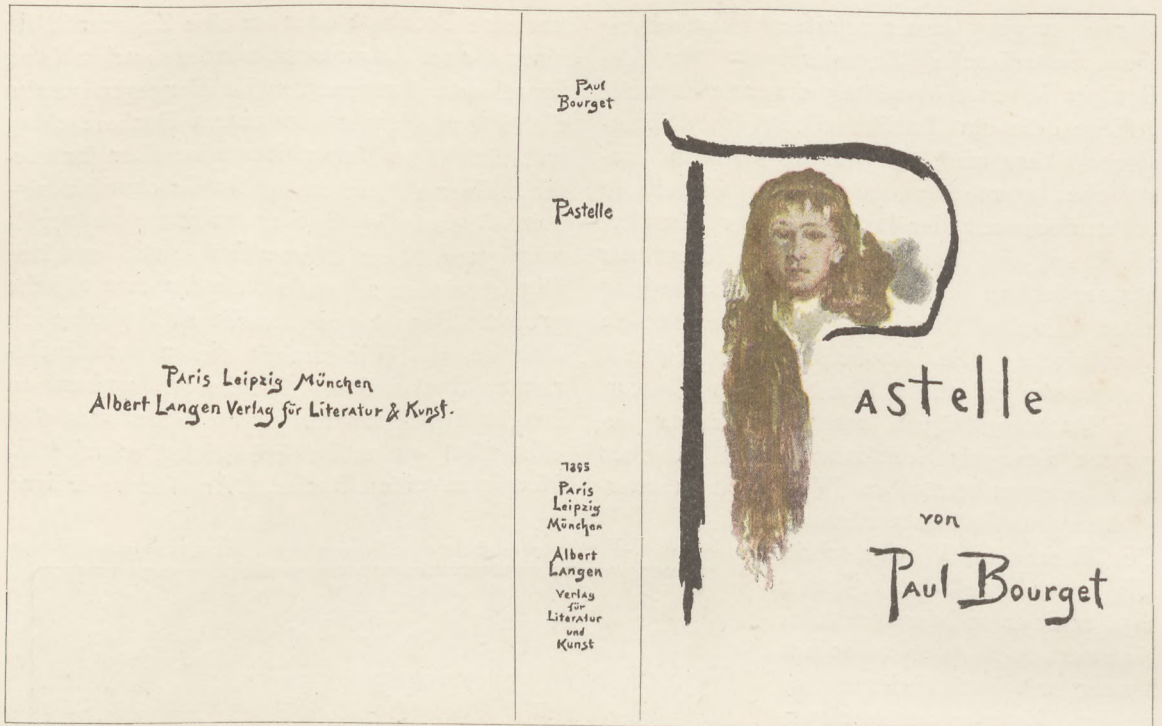 Paris Leipzig München
Albert Langen Verlag für Literatur & Kunst.
Paul
Bourget
Pastelle
1895
Paris
Leipzig
München
Albert
Langen
Verlag
für
Literatur
und
Kunst
Pastelle
von
Paul Bourget